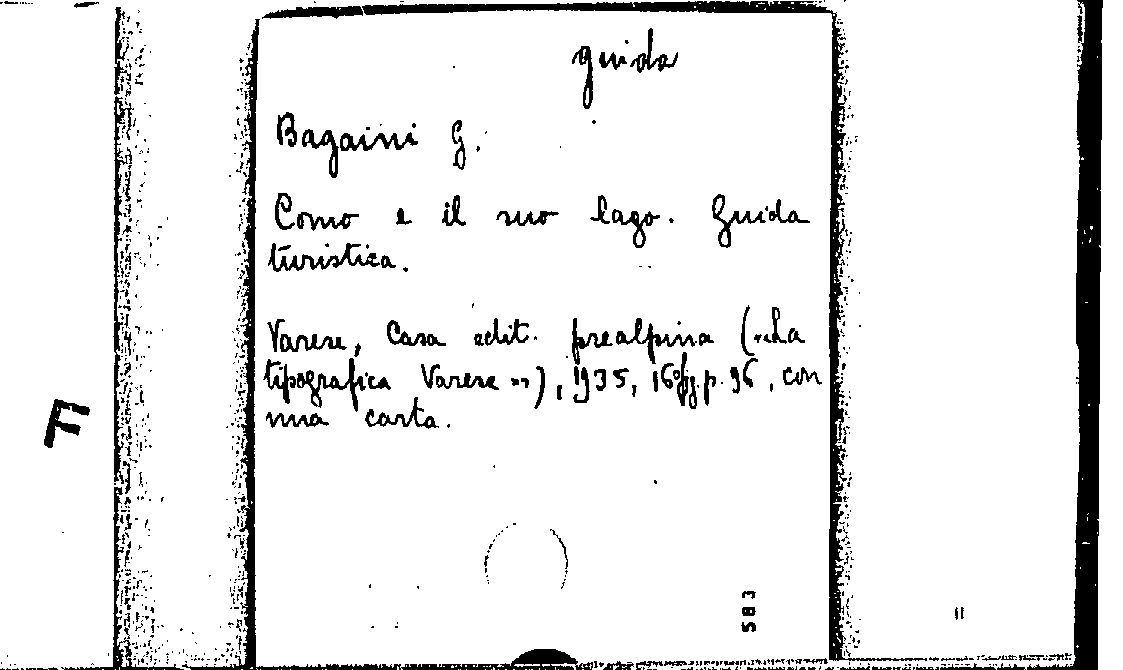 guida
Bagaini G.
Como e il suo lago. Guida
turistica.
Varese, Casa edit. prealpina (««La
tipografica Varese»»), 1935, 16º, p. 96, con
una carta.
F
583
11